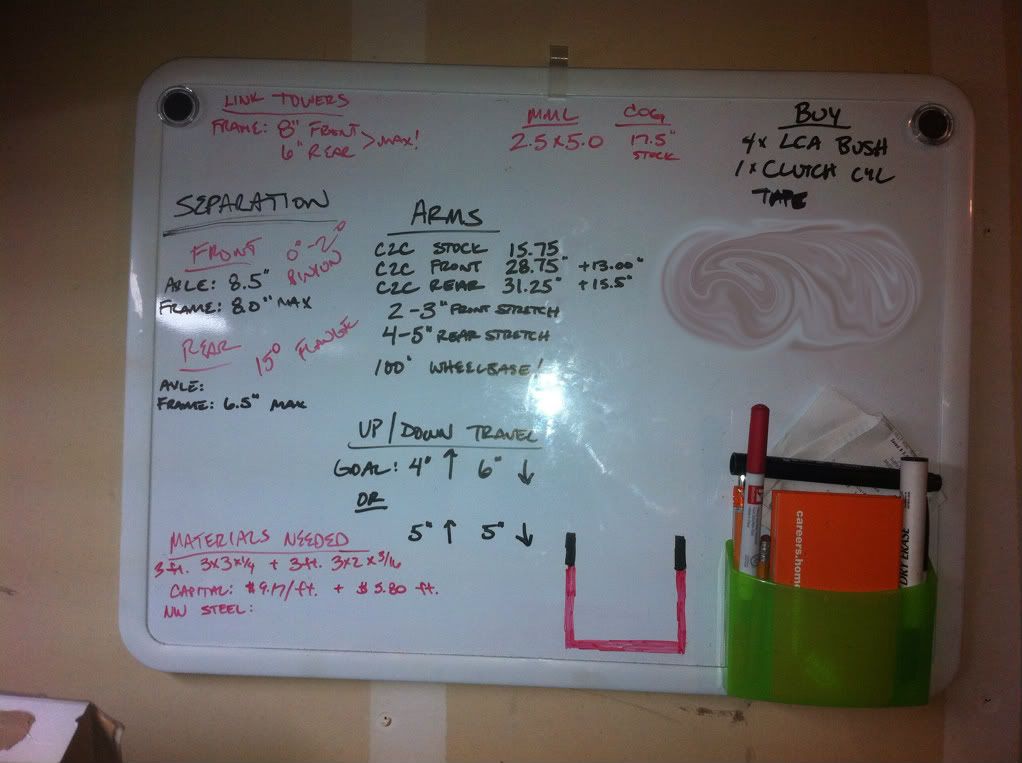 LINK TOWERS
FRAME: 8" FRONT
6" REAR > MAX!
MML
2.5 x 5.0
COG
17.5"
STOCK
BUY
4x LCA BUSH
1x CLUTCH CYL
TAPE
SEPARATION
FRONT 0°-2°
AXLE: 8.5"
FRAME: 8.0" MAX
REAR 15° FLANGE
AXLE:
FRAME: 6.5" MAX
ARMS
C2C STOCK 15.75
C2C FRONT 28.75" +13.00"
C2C REAR 31.25" +15.5"
2-3" FRONT STRETCH
4-5" REAR STRETCH
100" WHEELBASE!
UP/DOWN TRAVEL
GOAL: 4" ↑ 6" ↓
OR
5" ↑ 5" ↓
MATERIALS NEEDED
3ft. 3x3x1/4 + 3ft. 3x2x3/16
CAPITAL: $9.17/ft. + $5.80 ft.
NW STEEL:
careers.home
DRY ERASE